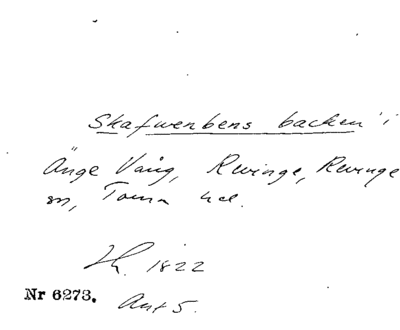 Skafwenbens backen i
Änge Vång, Revinge, Revinge
sn, Torna hd.
1822
Nr 6273. Akt 5.